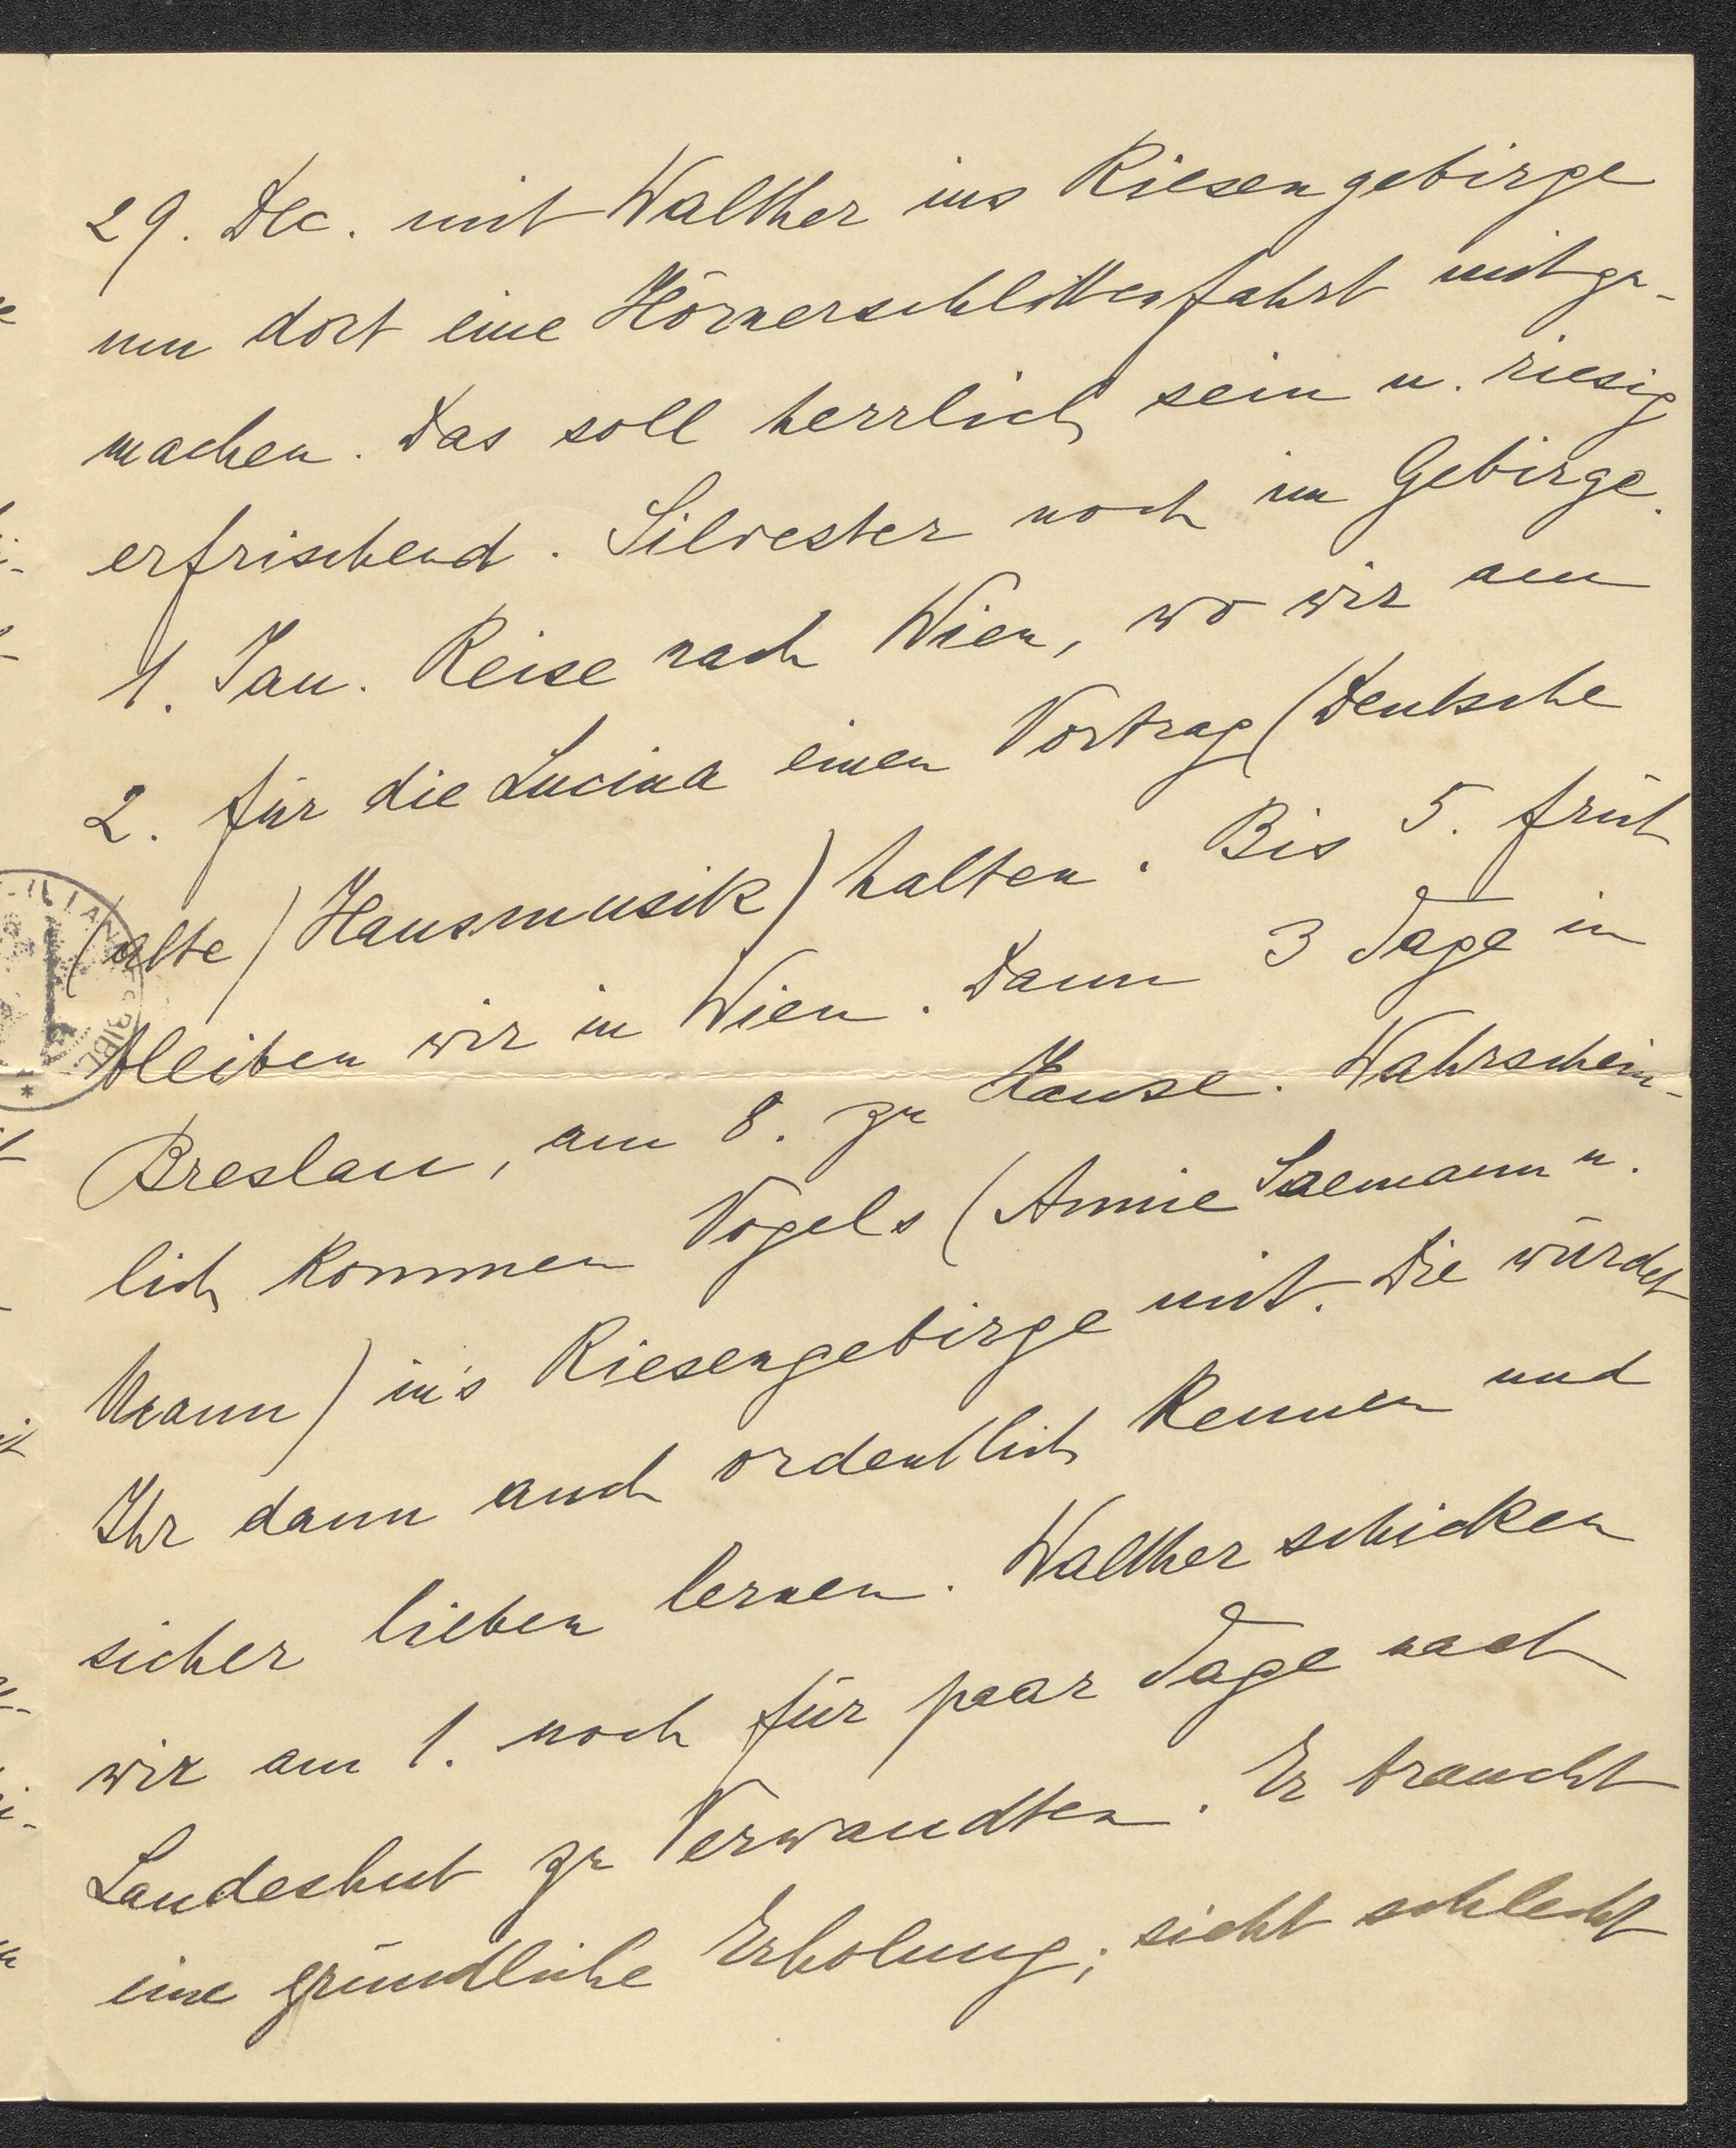 29. Dec. mit Walther ins Riesengebirge
um dort eine Hörnerschlittenfahrt mitzu-
machen. Das soll herrlich sein u. riesig
erfrischend. Silvester noch im Gebirge.
1. Jan. Reise nach Wien, wo wir am
2. für die Lucina einen Vortrag (Deutsche
(alte) Hausmusik) halten. Bis 5. früh
bleiben wir in Wien. Dann 3 Tage in
Breslau, am 8. zu Hause. Wahrschein-
lich kommen Vogels (Annie Saemann u.
Mann) in's Riesengebirge mit. Die würdet
Ihr dann auch ordentlich kennen und
sicher lieben lernen. Walther schicken
wir am 1. noch für paar Tage nach
Landeshut zu Verwandten. Er braucht
eine gründliche Erholung; sieht schlecht